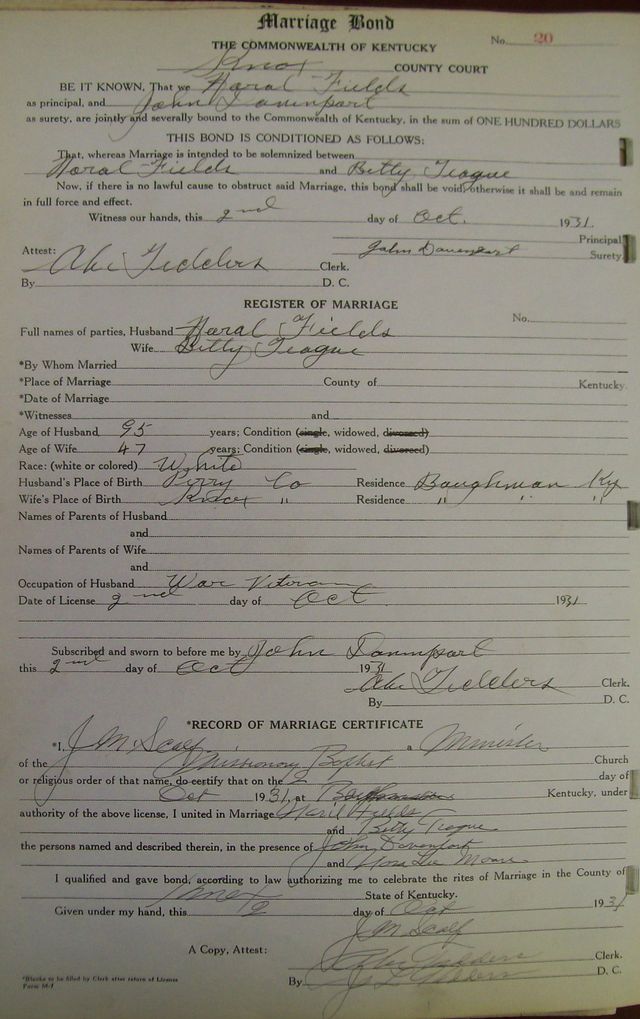 Marriage Bond
No. 20
THE COMMONWEALTH OF KENTUCKY
Knox COUNTY COURT
BE IT KNOWN, That we Haral Fields
as principal, and John Davenport
as surety, are jointly and severally bound to the Commonwealth of Kentucky, in the sum of ONE HUNDRED DOLLARS
THIS BOND IS CONDITIONED AS FOLLOWS:
That, whereas Marriage is intended to be solemnized between
Haral Fields and Betty Teague
Now, if there is no lawful cause to obstruct said Marriage, this bond shall be void, otherwise it shall be and remain
in full force and effect.
Witness our hands, this 2nd day of Oct. 1931.
Principal
Attest: John Davenport Surety
Clerk.
By D. C.
REGISTER OF MARRIAGE
No.
Full names of parties, Husband Haral Fields
Wife Betty Teague
*By Whom Married
*Place of Marriage County of Kentucky.
*Date of Marriage
*Witnesses and
Age of Husband 95 years; Condition (single, widowed, divorced)
Age of Wife 47 years; Condition (single, widowed, divorced)
Race: (white or colored) White
Husband's Place of Birth Perry Co Residence Baughman Ky
Wife's Place of Birth Knox " Residence " " "
Names of Parents of Husband
and
Names of Parents of Wife
and
Occupation of Husband War Veteran
Date of License 2nd day of Oct 1931
Subscribed and sworn to before me by John Davenport
this 2nd day of Oct 1931
Clerk.
By D. C.
*RECORD OF MARRIAGE CERTIFICATE
*I, J M Scalf a Minister
of the Missionary Baptist Church
or religious order of that name, do certify that on the 2 day of
Oct 1931, at Kentucky, under
authority of the above license, I united in Marriage Fields
and Betty Teague
the persons named and described therein, in the presence of John Davenport
and Nora Lee Moore
I qualified and gave bond, according to law authorizing me to celebrate the rites of Marriage in the County of
Knox State of Kentucky.
Given under my hand, this 2 day of Oct 1931
J M Scalf
A Copy, Attest: Clerk.
By D. C.
*Blanks to be filled by Clerk after return of License
Form M-1